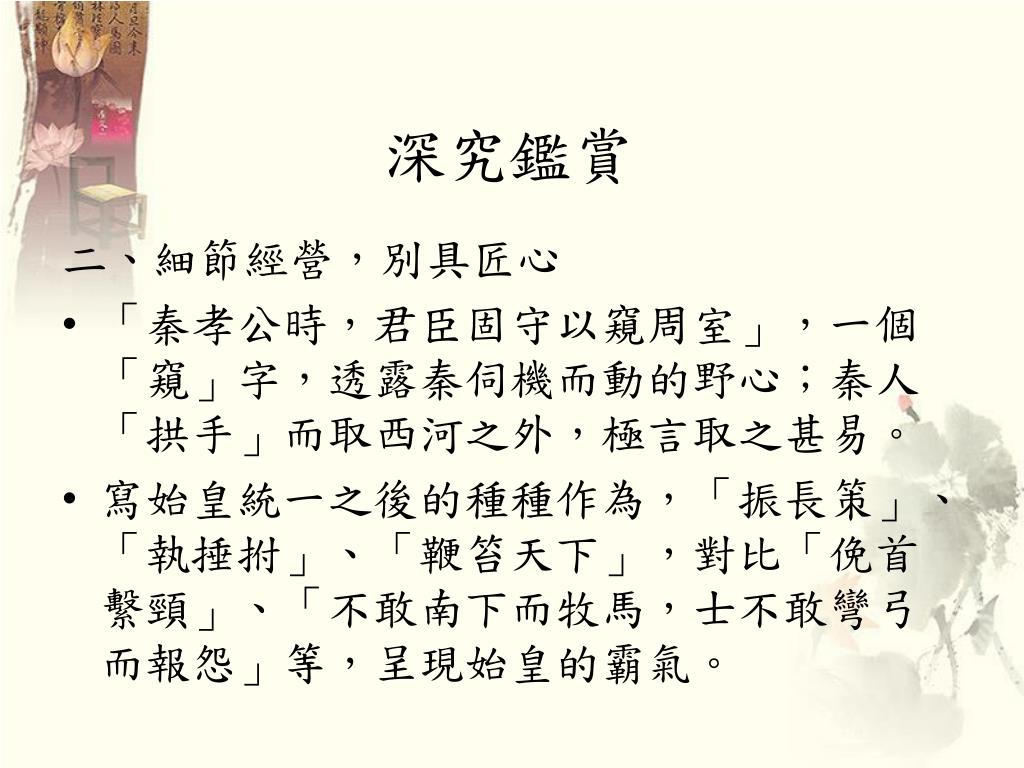 深究鑑賞
二、細節經營，別具匠心
• 「秦孝公時，君臣固守以窺周室」，一個
「窺」字，透露秦伺機而動的野心；秦人
「拱手」而取西河之外，極言取之甚易。
• 寫始皇統一之後的種種作為，「振長策」、
「執捶拊」、「鞭笞天下」，對比「俛首
繫頸」、「不敢南下而牧馬，士不敢彎弓
而報怨」等，呈現始皇的霸氣。